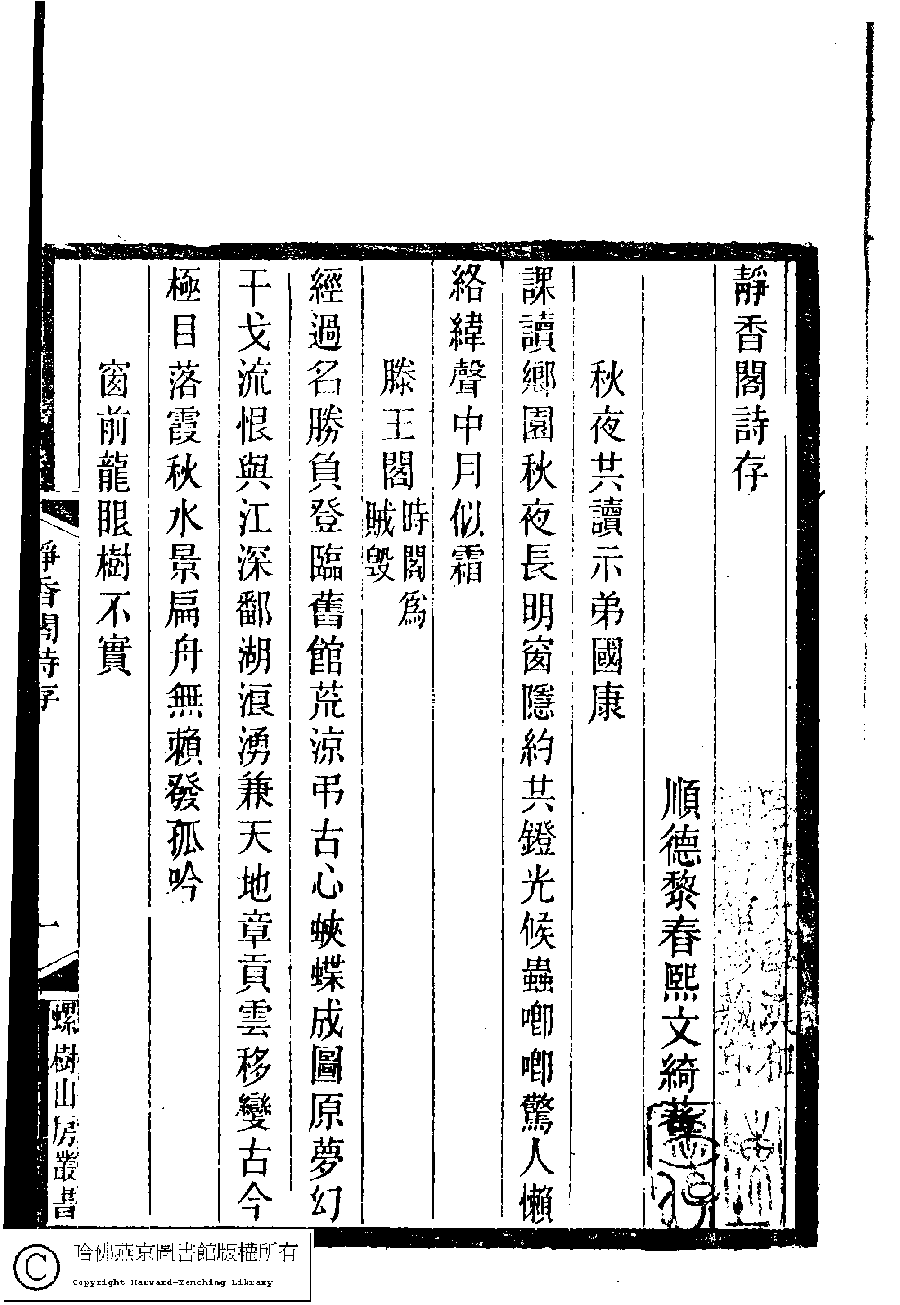 靜香閣詩存
順德黎春熙文綺著
秋夜共讀示弟國康
課讀鄉園秋夜長明窗隱約共鐙光候蟲喞喞驚人懶
絡緯聲中月似霜
滕王閣時閣爲賊毁
經過名勝負登臨舊館荒涼弔古心蛺蝶成圖原夢幻
干戈流恨與江深鄱湖浪湧兼天地章貢雲移變古今
極目落霞秋水景扁舟無賴發孤吟
窗前龍眼樹不實
靜香閣詩存
一
螺樹山房叢書
哈佛燕京圖書館版權所有
Copyright Harvard-Yenching Library